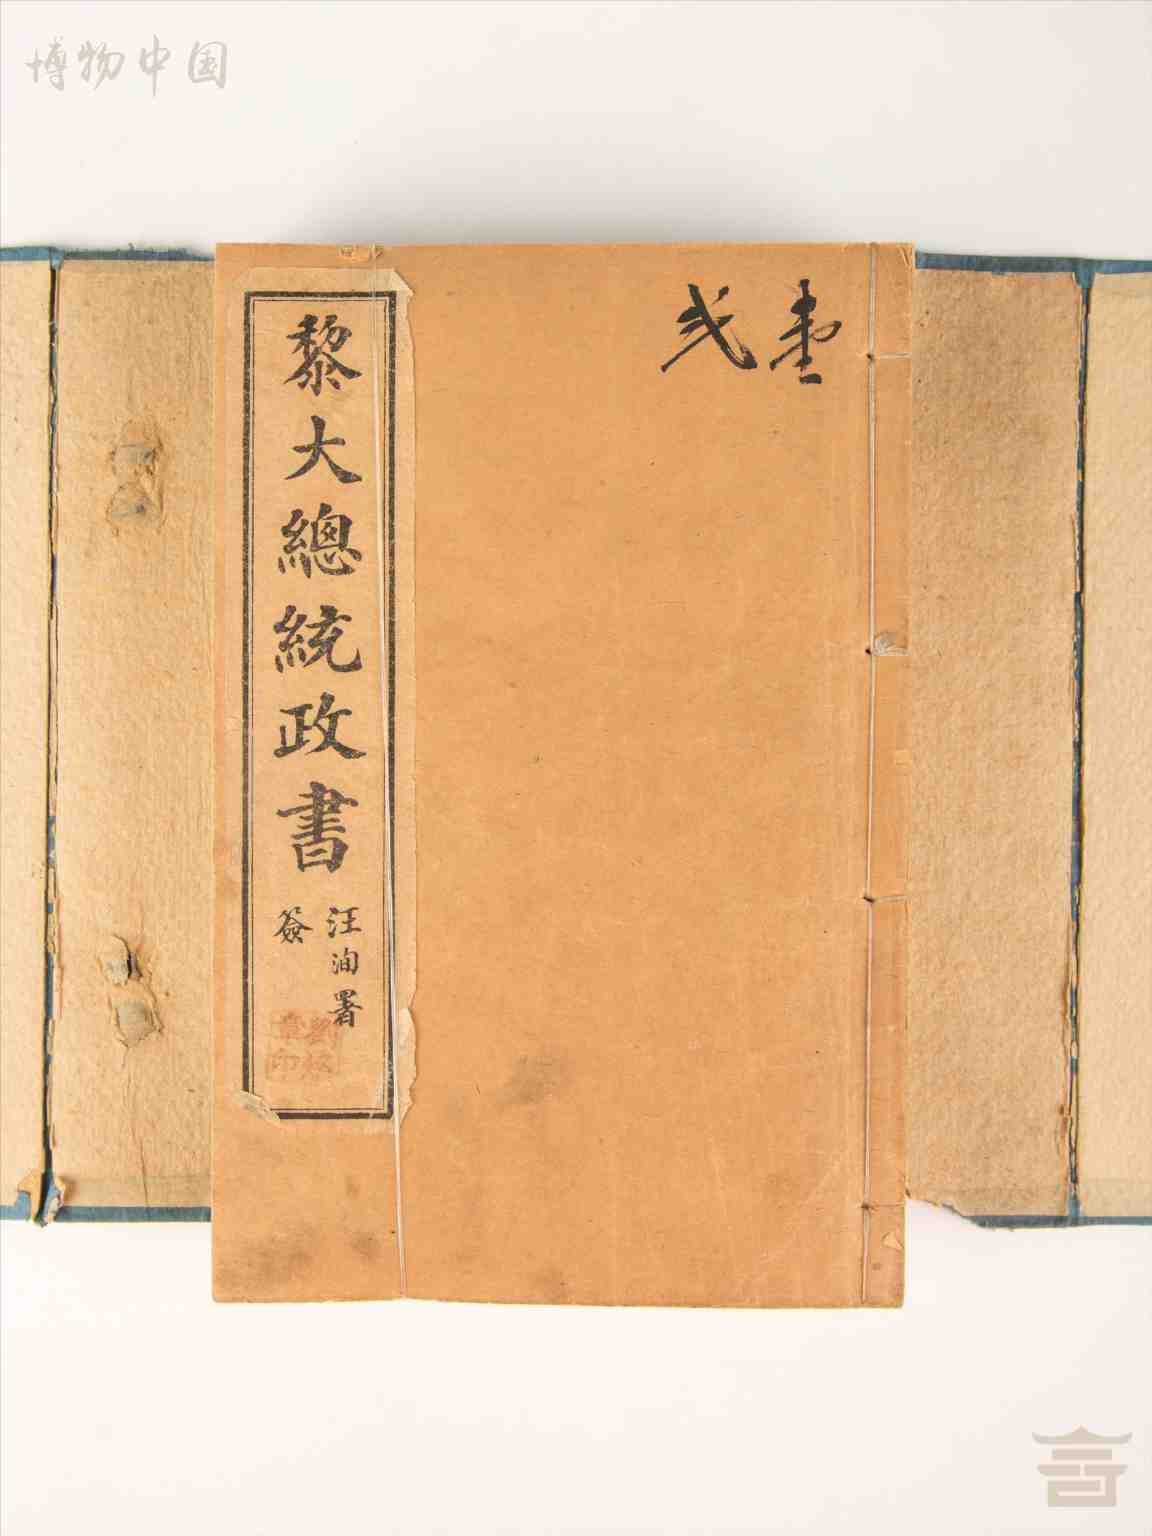 博物中国
壹
弍
黎大總統政書
汪洵署
簽